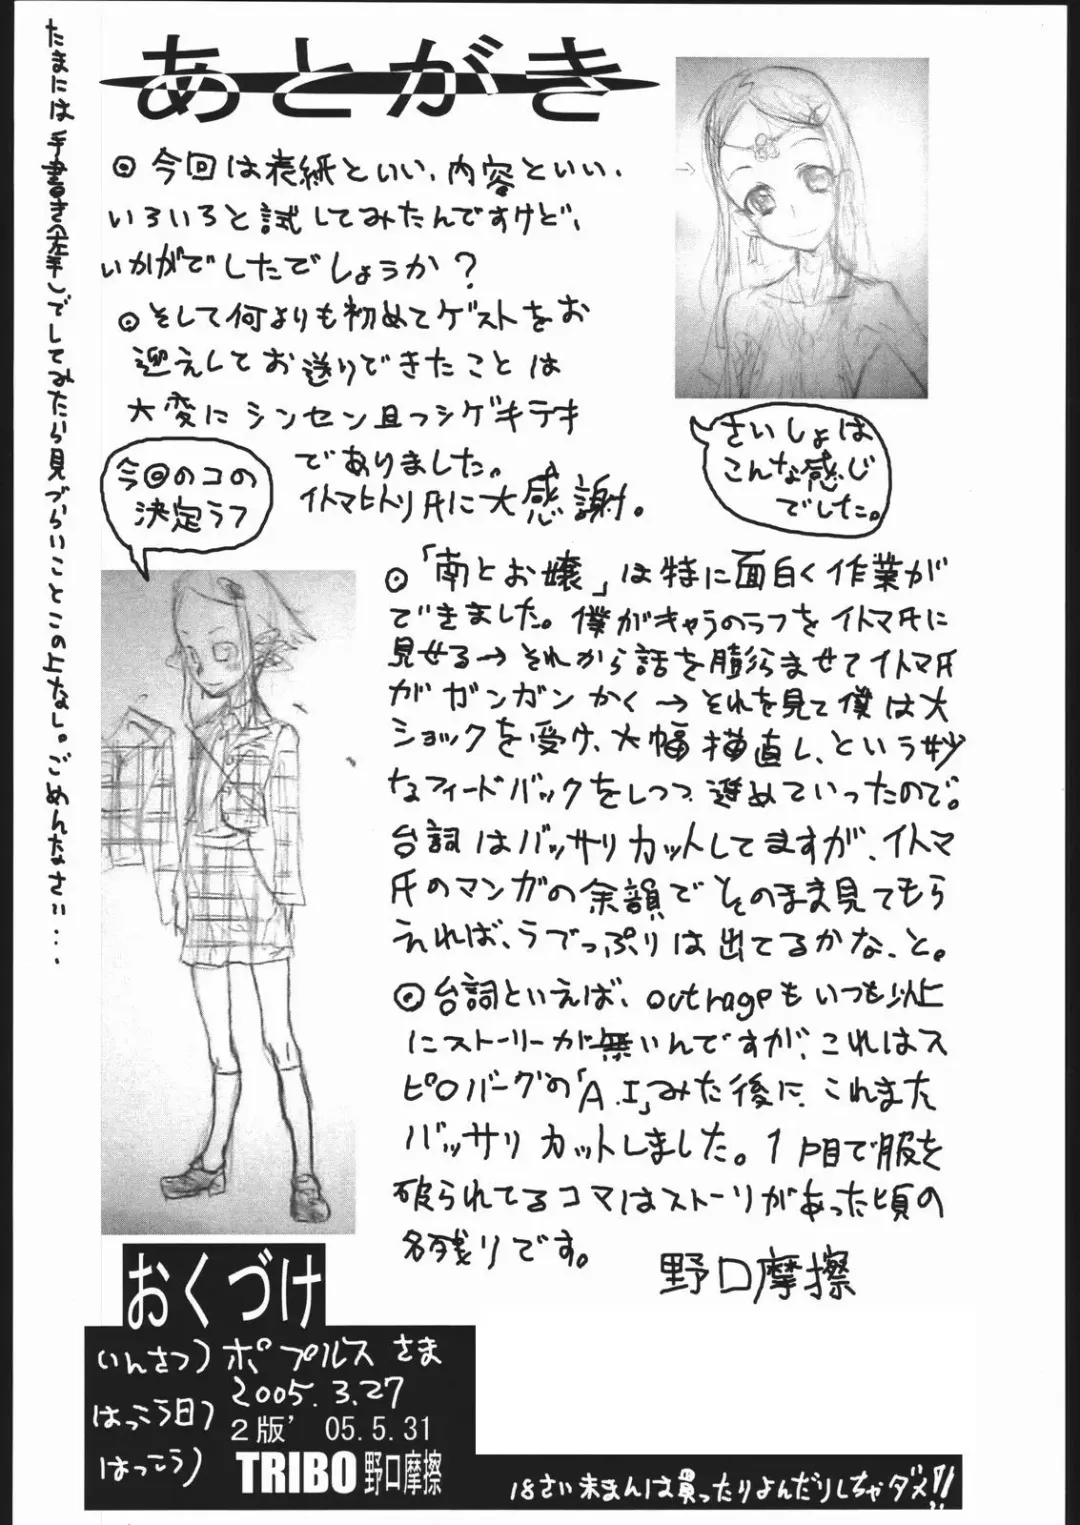 あとがき
◎今回は表紙といい、内容といい、
いろいろと試してみたんですけど、
いかがでしたでしょうか?
◎そして何よりも初めてゲストをお
迎えしてお送りできたことは
大変にシンセン且つシゲキテキ
でありました。
イトマヒトリ氏に大感謝。
さいしょは
こんな感じ
でした。
今回のコの
決定ラフ
◎「南とお嬢」は特に面白く作業が
できました。僕がキャラのラフをイトマ氏に
見せる→それから話を膨らませてイトマ氏
がガンガンかく→それを見て僕は大
ショックを受け、大幅描直し、という妙
なフィードバックをしつつ進めていったので。
台詞はバッサリカットしてますが、イトマ
氏のマンガの余韻でそのまま見てもら
えれば、うでっぷりは出てるかな、と。
◎台詞といえば、outrageもいつも以上
にストーリーが無いんですが、これはス
ピルバーグの「A.I」みた後に、これまた
バッサリカットしました。1P目で服を
破られてるコマはストーリがあった頃の
名残りです。
野口摩擦
たまには手書き(左手)でしてみたら見づらいことこの上なし。ごめんなさい...
おくづけ
(いんさつ)ポプルスさま
(はっこう日)2005.3.27
2版' 05.5.31
(はっこう)TRIBO野口摩擦
18さい未まんは買ったりよんだりしちゃダメ!!